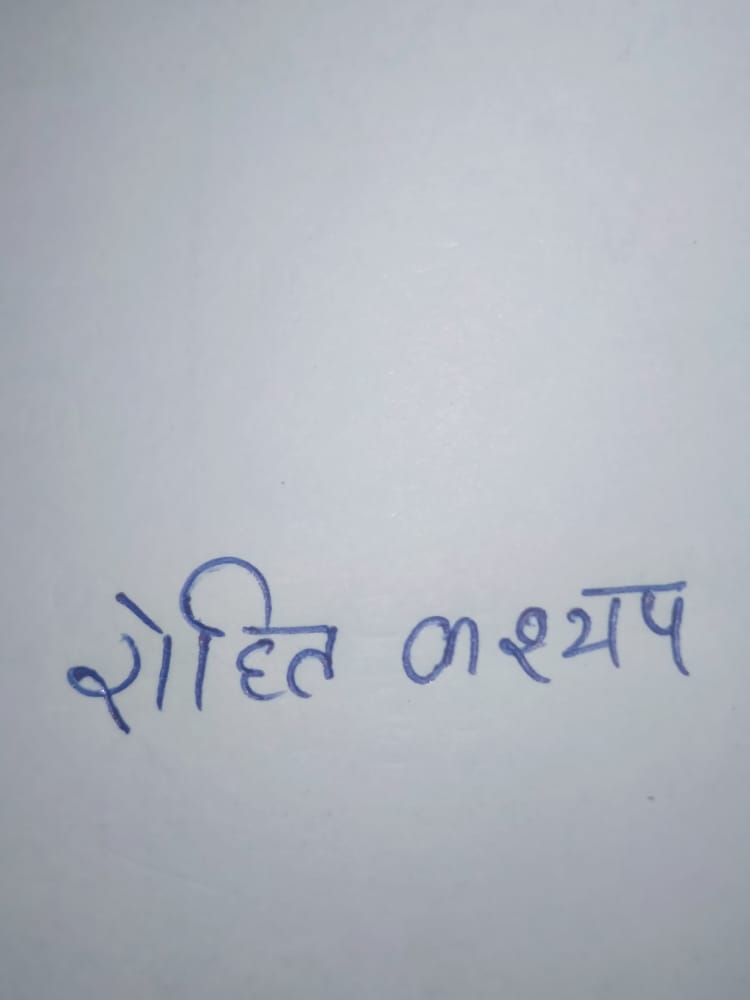 रोहित कश्यप